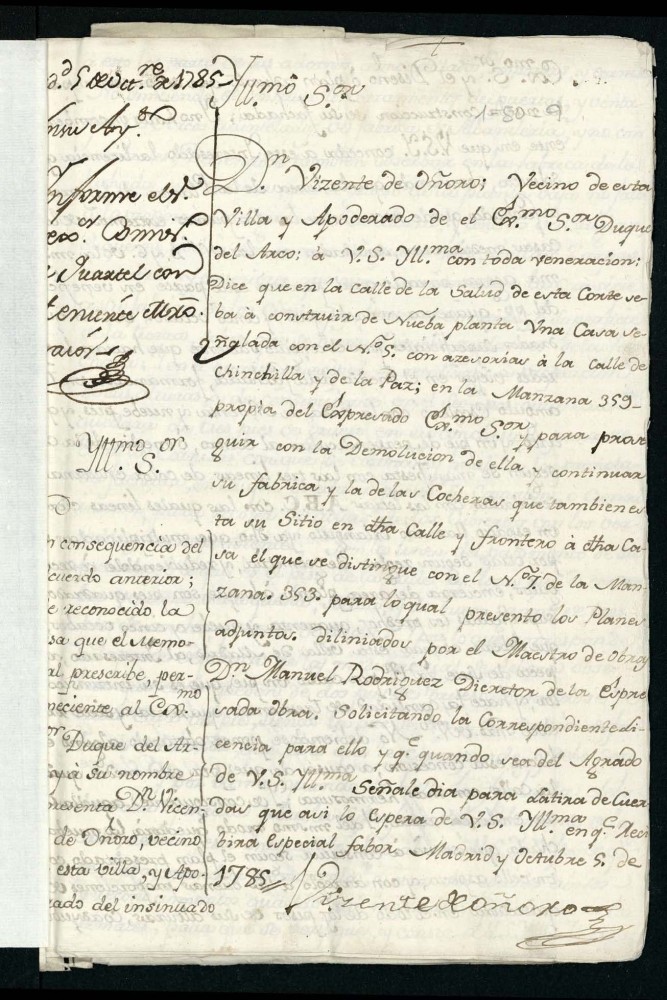 d.d 5 de Oct.re de 1785
Ay.to
Informe el S.r
Comis.o
Quartel con
Theniente Mro.
maior
Yll.mo S.or
consequencia del
cuerdo anterior;
e reconocido la
sa que el Memo-
al prescribe, per-
neciente al Ex.mo
Duque del Ar-
y à su nombre
resenta D.n Vicen-
de Oñoro, vecino
esta villa, y Apo-
rado del insinuado
Yll.mo S.or
D.n Vizente de Oñoro; Vecino de esta
Villa y Apoderado de el Ex.mo S.or Duque
del Arco; à V.S. Yll.ma con toda veneracion:
Dice que en la calle de la Salud de esta Corte se
ba à construir de Nueba planta Vna Casa se-
ñalada con el N.o 5. con azesorias à la calle de
Chinchilla y de la Paz; en la Manzana 359-
propia del Expresado Ex.mo S.or y para prose
guir con la Demolucion de ella y continuar
su fabrica y la de las Cocheras que tambien es
ta su Sitio en dha Calle y frontero à dha Ca-
sa el que se distingue con el N.o 7. de la Man-
zana. 353. para lo qual presento los Planes
adjuntos. diliniados por el Maestro de Obras
D.n Manuel Rodriguez Dicretor de la Espre
sada Obra. Solicitando la Correspondiente Li-
cencia para ello y q.e quando sea del Agrado
de V.S. Yll.ma Señale dia para la tira de Cuer
das que asi lo Espera de V.S. Yll.ma en q.e Reci
bira Especial fabor Madrid y Octubre 5. de
1785
Vizente de Oñoro